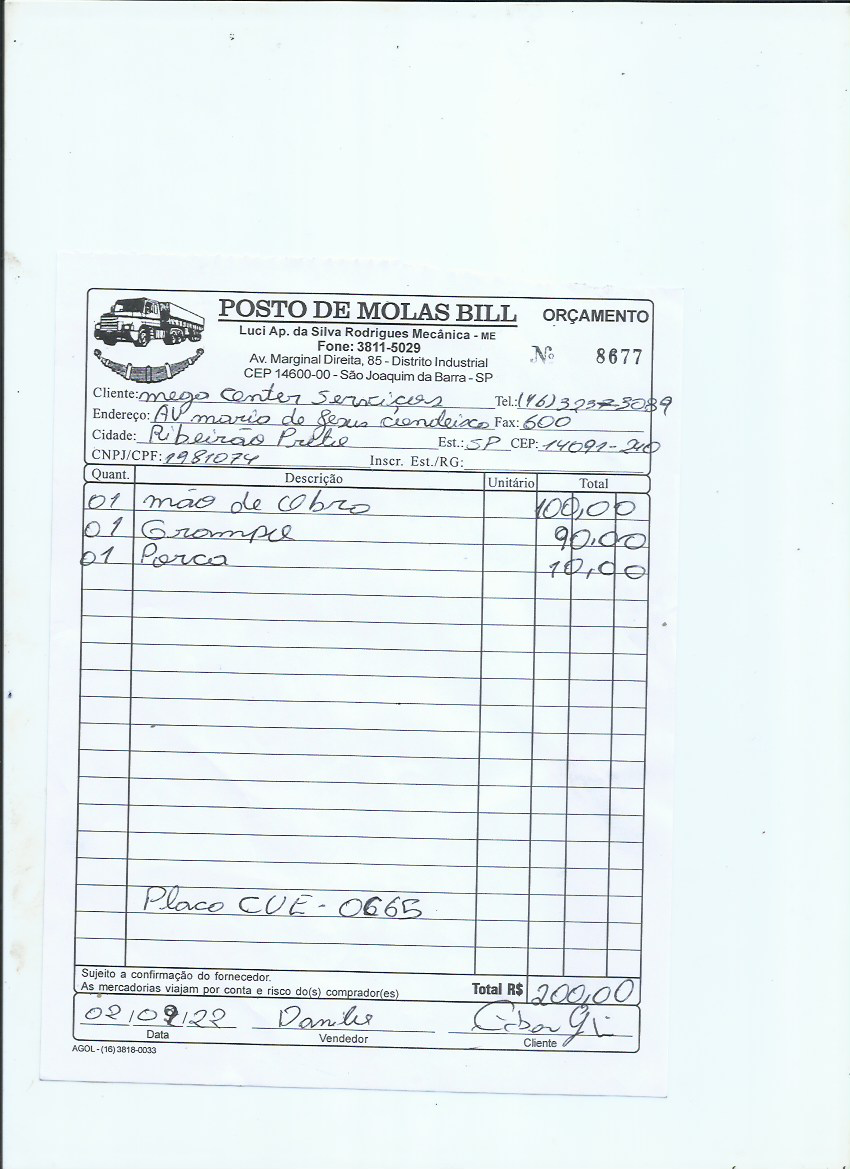 POSTO DE MOLAS BILL
ORÇAMENTO
Luci Ap. da Silva Rodrigues Mecânica - ME
Fone: 3811-5029
Av. Marginal Direita, 85 - Distrito Industrial
CEP 14600-00 - São Joaquim da Barra - SP
Nº 8677
Cliente: mega Center Servicos Tel.: (16) 3237-3089
Endereço: AV mario de Jesus Fax: 600
Cidade: Ribeirão Preto Est.: SP CEP: 14091-210
CNPJ/CPF: 1981074 Inscr. Est./RG:
Quant. Descrição Unitário Total
01 mão de Obra 100,00
01 Grampo 90,00
01 Porca 10,00
Placo CUE - 0665
Sujeito a confirmação do fornecedor.
As mercadorias viajam por conta e risco do(s) comprador(es)
Total R$ 200,00
02/09/22
Data Vendedor Cliente
AGOL - (16) 3818-0033